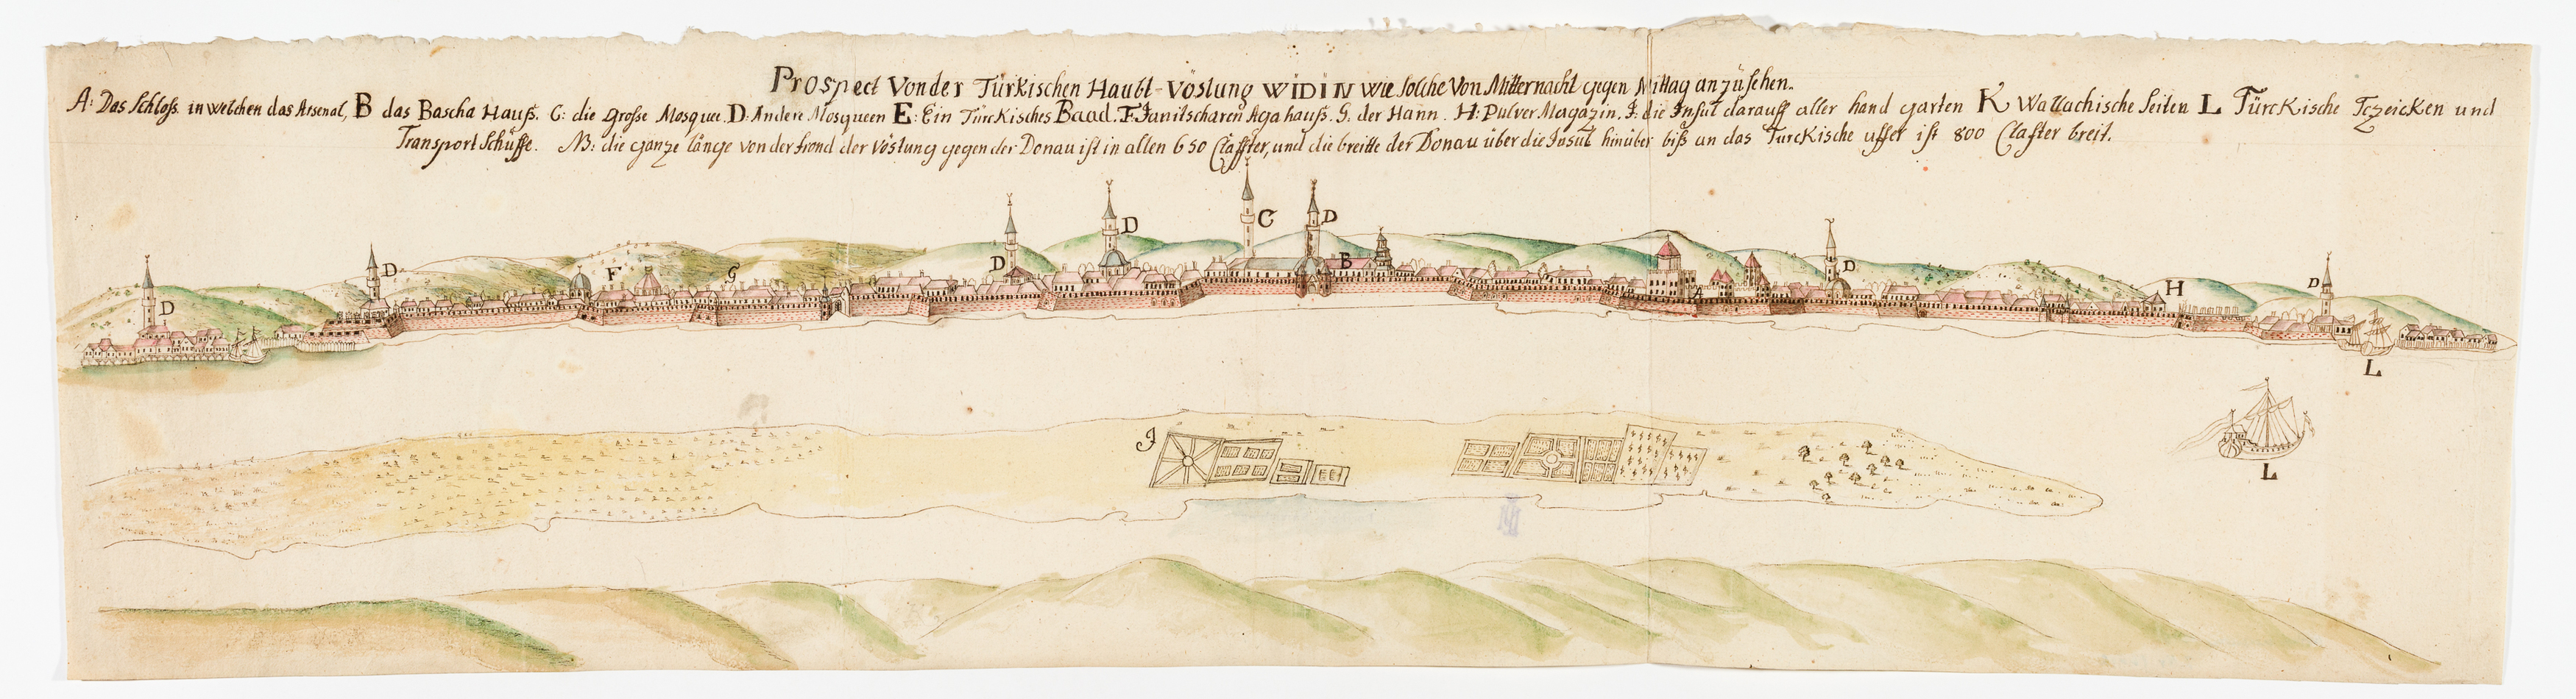 Prospect Von der Türkischen Haubt-Vöstung WIDIN wie solche Von Mitternacht gegen Mittag anzüsehen.
A: Das Schloss. in welchen das Arsenal, B das Bascha Hauß. C: die grosse Mosquee. D: Andere Mosqueen E: Ein Türckisches Baad. F. Janitscharen Aga hauss. G. der Hann. H: Pulver Magazin. J. die Insul darauff aller hand garten K Wallachische Seiten L Türckische Tzeicken und
Transport Schüffe. NB: die ganze länge von der frond der Vöstung gegen der Donau ist in allen 650 Claffter, und die breitte der Donau über die Insul hinüber biß an das Türckische uffer ist 800 Clafter breit.
C
D
D
D
D
F
G
D
B
D
A
H
D
L
J
L